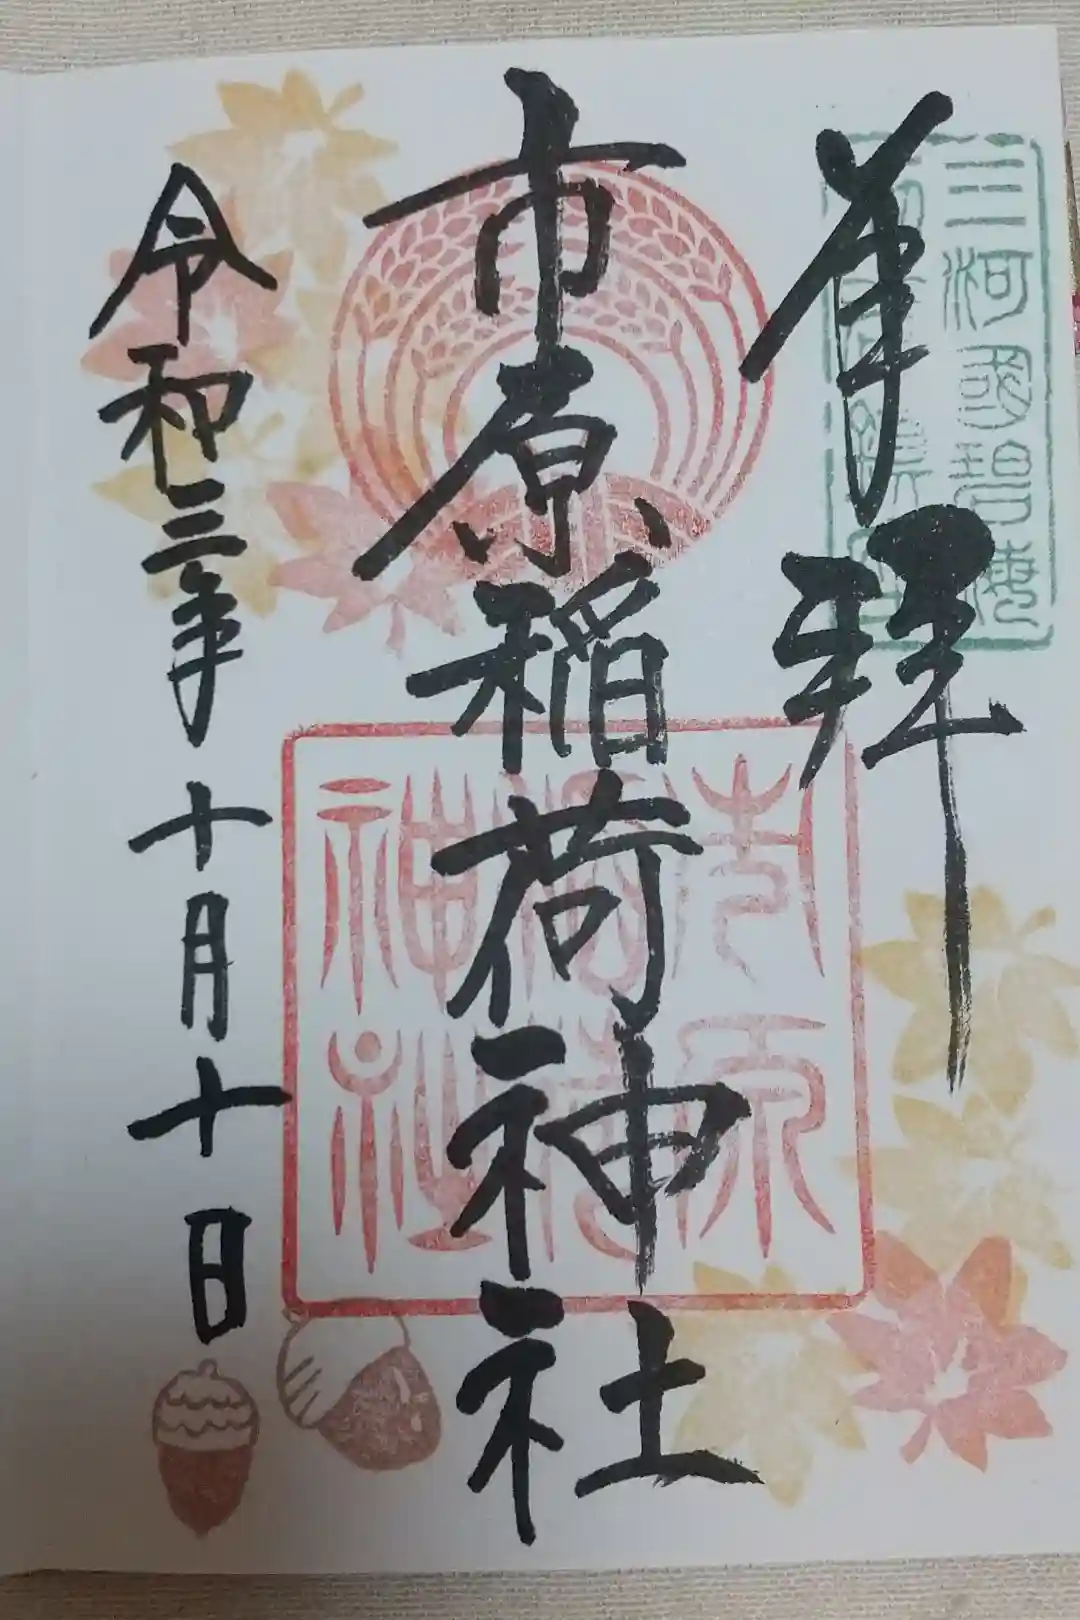 奉拝
三河國碧海
市原稲荷神社
市原
稲荷
神社
令和三年十月十日